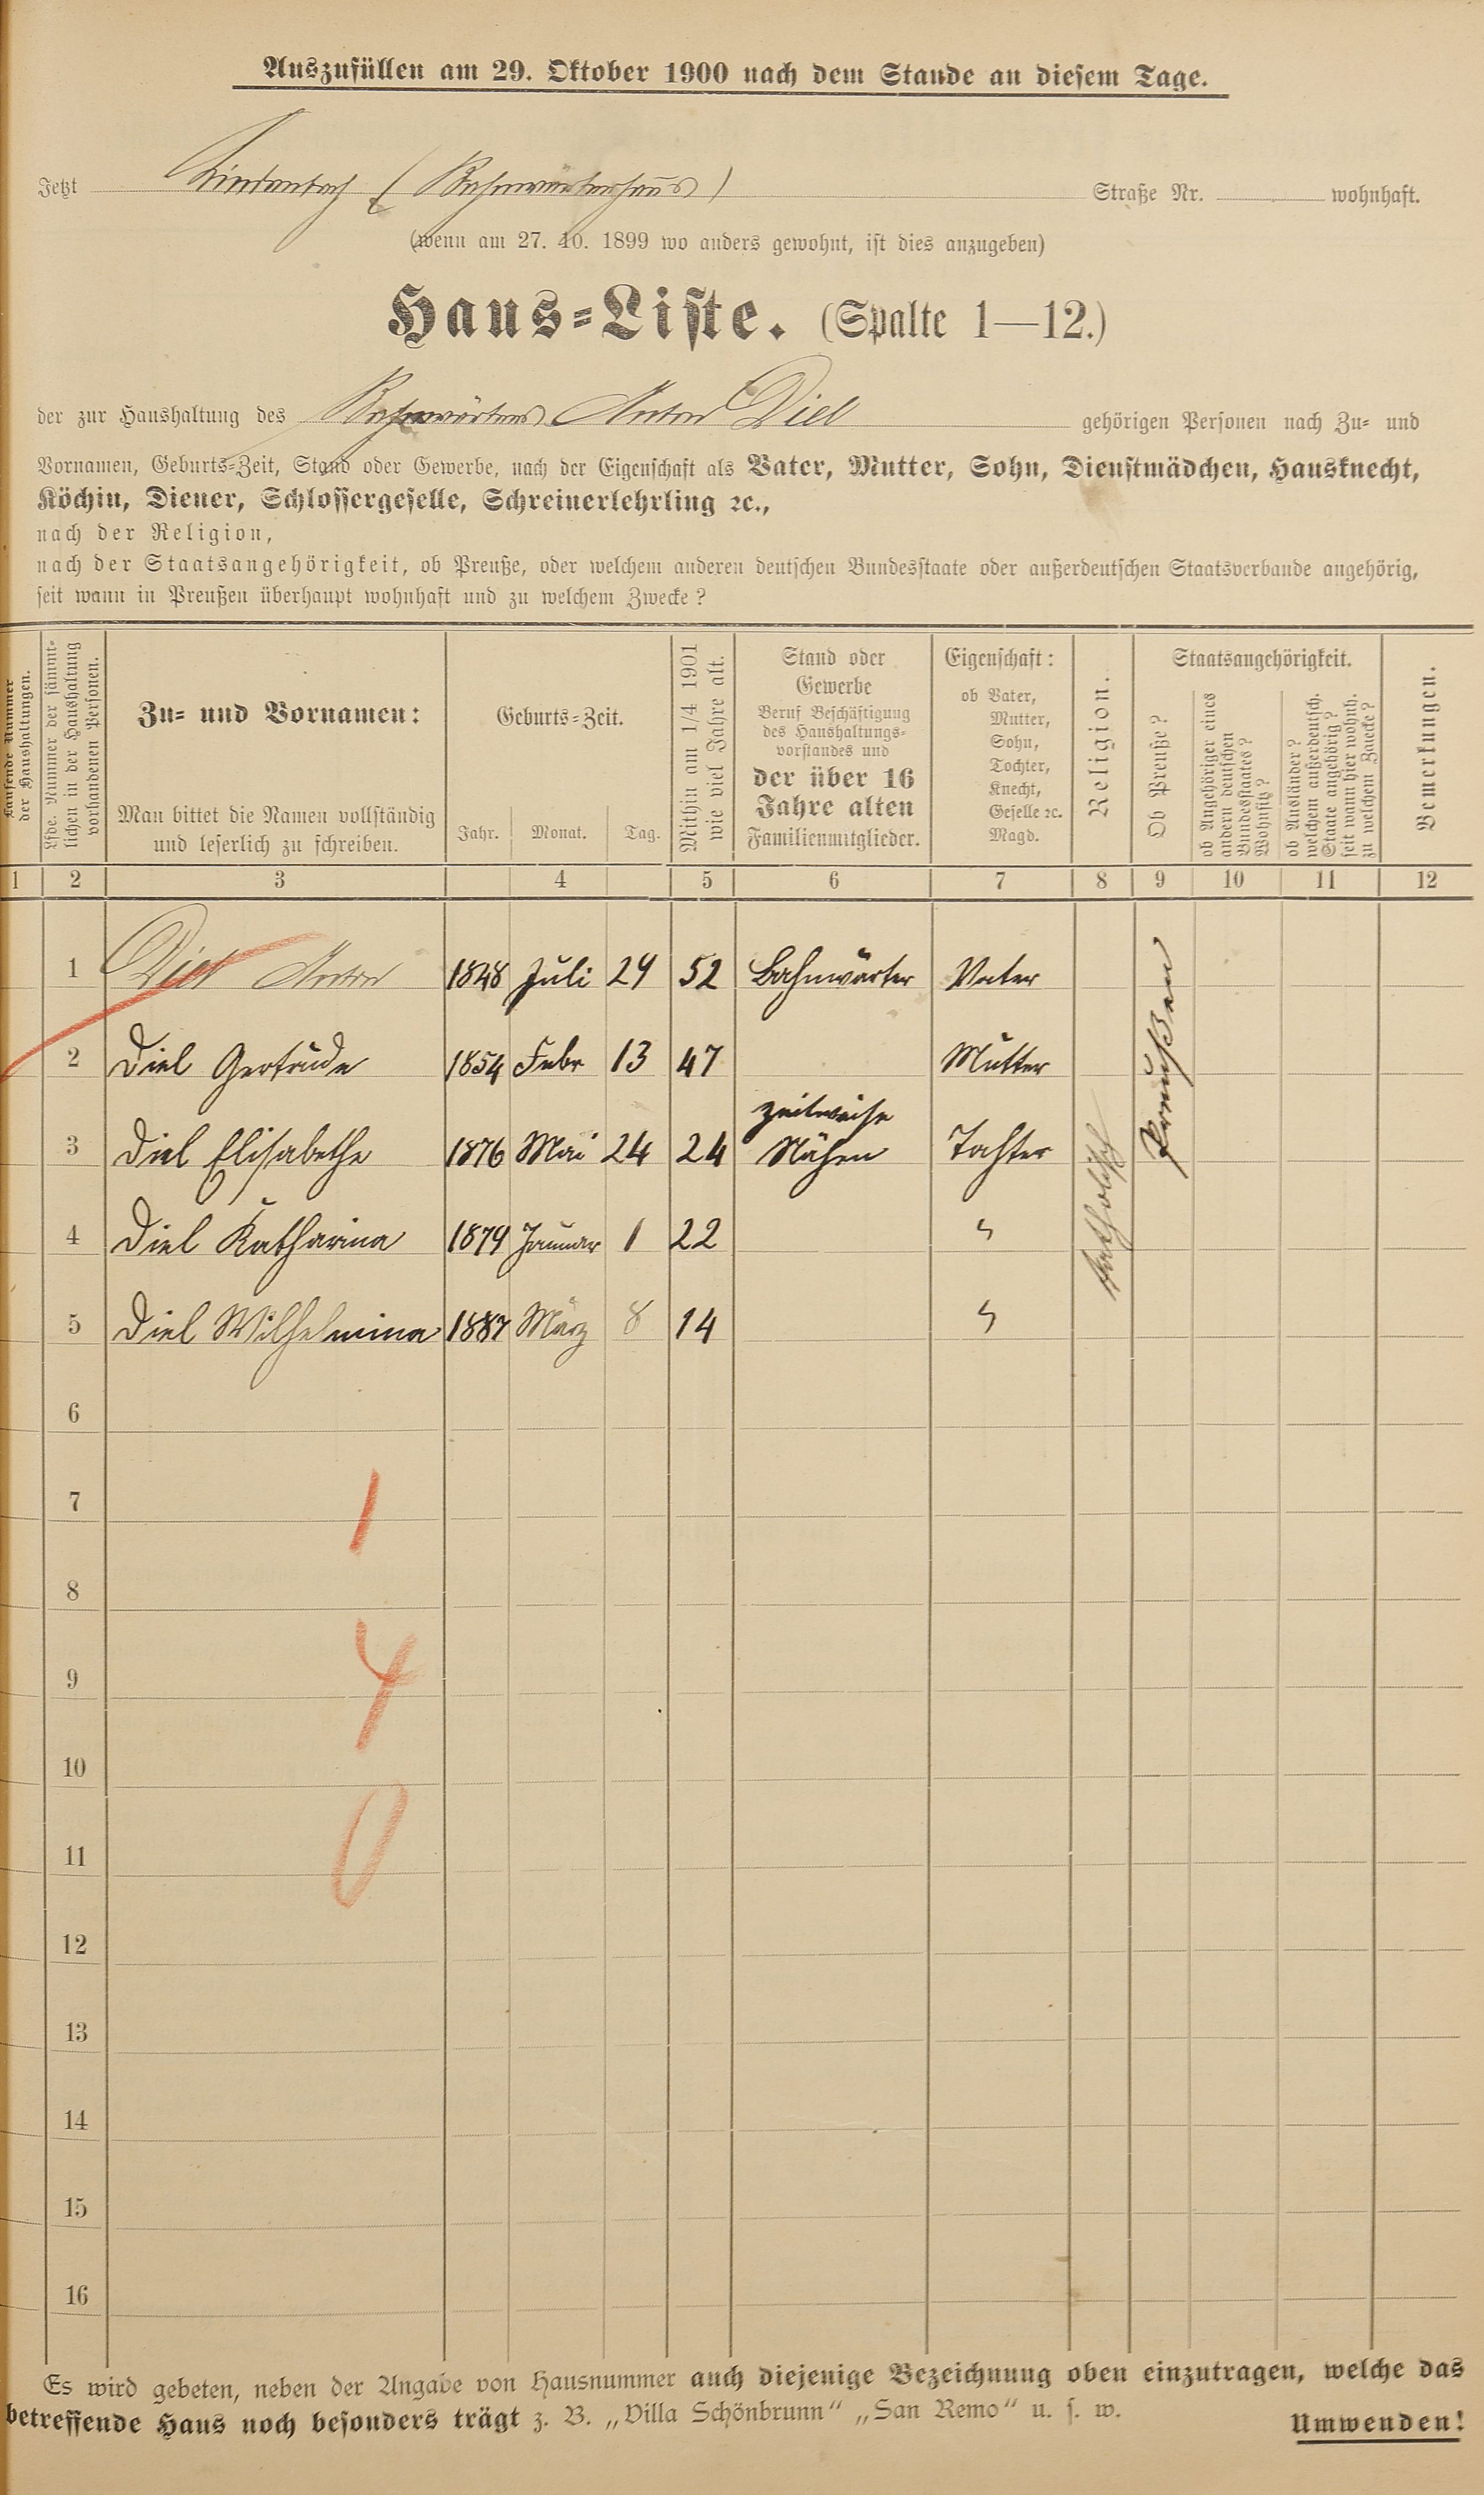 Auszufüllen am 29. Oktober 1900 nach dem Stande an diesem Tage.
Jetzt Lindenbach (Bahnwärterhaus) Straße Nr. wohnhaft.
(wenn am 27. 10. 1899 wo anders gewohnt, ist dies anzugeben)
Haus-Liste. (Spalte 1—12.)
der zur Haushaltung des Bahnwärters Anton Diel gehörigen Personen nach Zu- und
Vornamen, Geburts-Zeit, Stand oder Gewerbe, nach der Eigenschaft als Vater, Mutter, Sohn, Dienstmädchen, Hausknecht,
Köchin, Diener, Schlossergeselle, Schreinerlehrling ꝛc.,
nach der Religion,
nach der Staatsangehörigkeit, ob Preuße, oder welchem anderen deutschen Bundesstaate oder außerdeutschen Staatsverbande angehörig,
seit wann in Preußen überhaupt wohnhaft und zu welchem Zwecke?
Laufende Nummer
der Haushaltungen.
Lfde. Nummer der sämmt-
lichen in der Haushaltung
vorhandenen Personen.
Zu- und Vornamen:
Man bittet die Namen vollständig
und leserlich zu schreiben.
Geburts-Zeit.
Jahr. Monat. Tag.
Mithin am 1/4 1901
wie viel Jahre alt.
Stand oder
Gewerbe
Beruf Beschäftigung
des Haushaltungs-
vorstandes und
der über 16
Jahre alten
Familienmitglieder.
Eigenschaft:
ob Vater,
Mutter,
Sohn,
Tochter,
Knecht,
Geselle ꝛc.
Magd.
Religion.
Staatsangehörigkeit.
Ob Preuße?
ob Angehöriger eines
andern deutschen
Bundesstaates?
Wohnsitz?
ob Ausländer?
welchem außerdeutsch.
Staate angehörig?
seit wann hier wohnh.
zu welchem Zwecke?
Bemerkungen.
1 2 3 4 5 6 7 8 9 10 11 12
1 Diel Anton 1848 Juli 29 52 Bahnwärter Vater
2 Diel Gertrude 1854 Febr 13 47 Mutter
3 Diel Elisabethe 1876 Mai 24 24 zeitweise Nähen Tochter
4 Diel Katharina 1879 Januar 1 22 "
5 Diel Wilhelmina 1887 März 8 14 "
katholisch
Preußen
6
7
1
8
9
4
10
11
0
12
13
14
15
16
Es wird gebeten, neben der Angabe von Hausnummer auch diejenige Bezeichnung oben einzutragen, welche das
betreffende Haus noch besonders trägt z. B. „Villa Schönbrunn“ „San Remo“ u. s. w.
Umwenden!